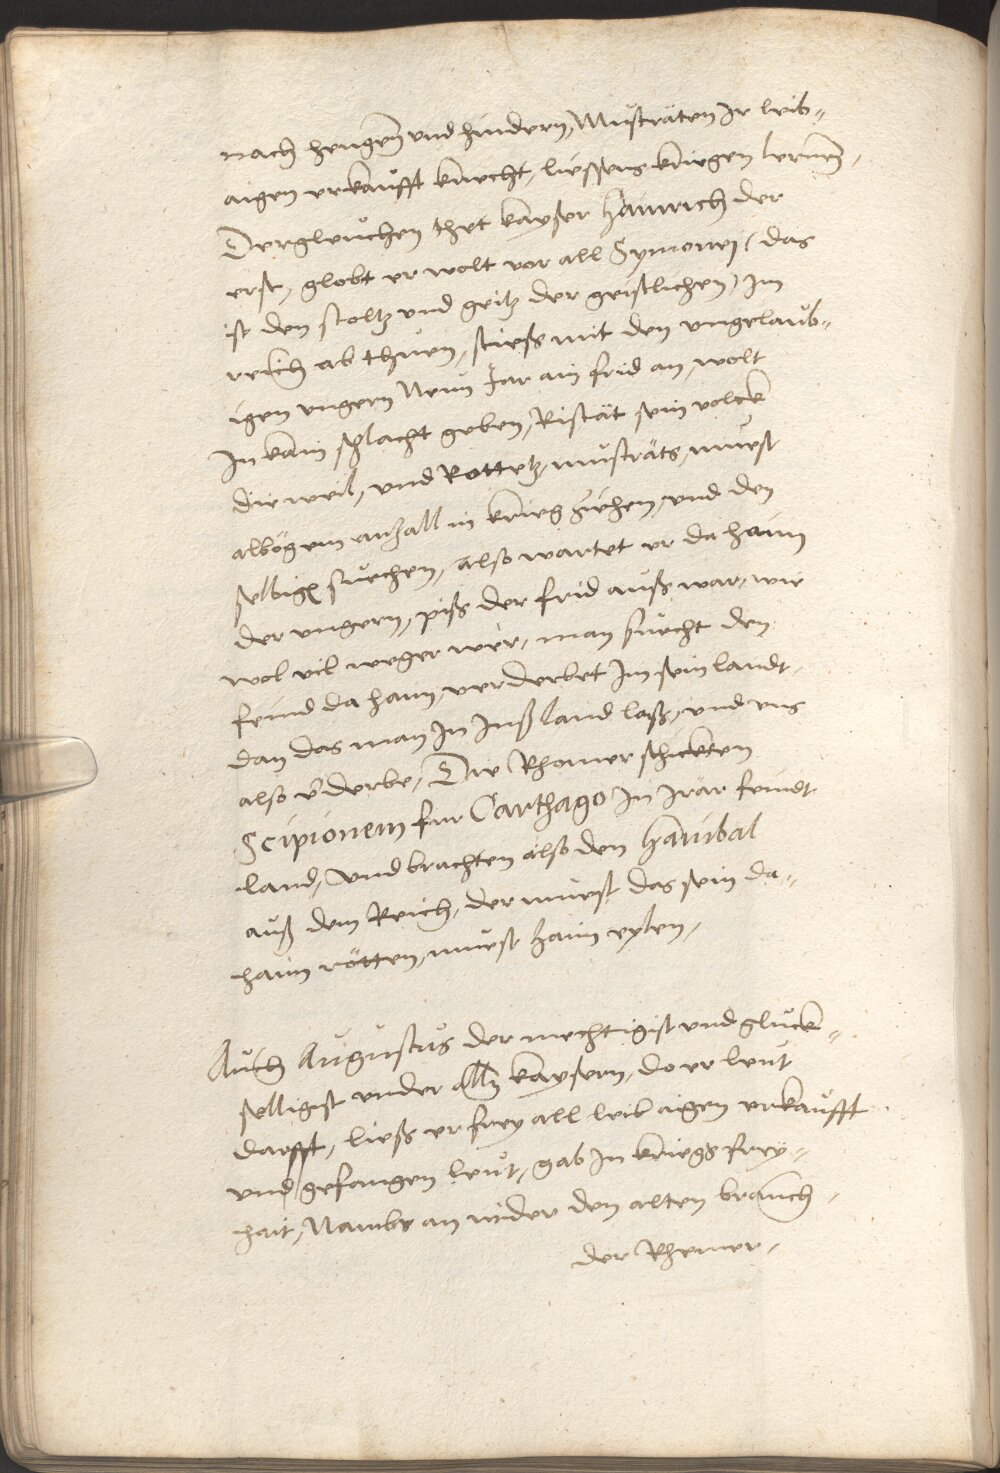 nach hengen und hindern, Musträten Ir leib-
aigen erkaufft knecht, liessens kriegen lernen,
Dergleuchen thet kayser Hainrich der
erst, globt er wolt vor all Symonej (das
ist den stoltz und geitz der geistlichen) im
reich ab thuen, stiess mit den ungelaub-
igen ungern Neun Jar ain frid an, wolt
In kain schlacht geben, Ristät sein volck
die weil, und Rottetz, musträts, muest
albög ein anzall in krieg ziehen, und den
selbigen suechen, also wartet er da haim
der ungern, piss der frid auss war, wie
wol vil weger wer, man suecht den
feind da haim, verderbet Im sein landt,
dan das man In Inss land lass, und uns
also verderbe, Die Rhomer schickten
Scipionem fur Carthago In Irär feindt
land, und brachten also den Hanibal
auss dem Reich, der muest das sein da-
haim rötten, muest haim eylen,
Auch Augustus der mechtigist und gluck-
selligist under allen kaysern, do er leut
darfft, liess er frey all leib aigen erkaufft
und gefangen leut, gab In kriegs frey-
hait, Nambs an wider den alten brauch,
der Rhomer,